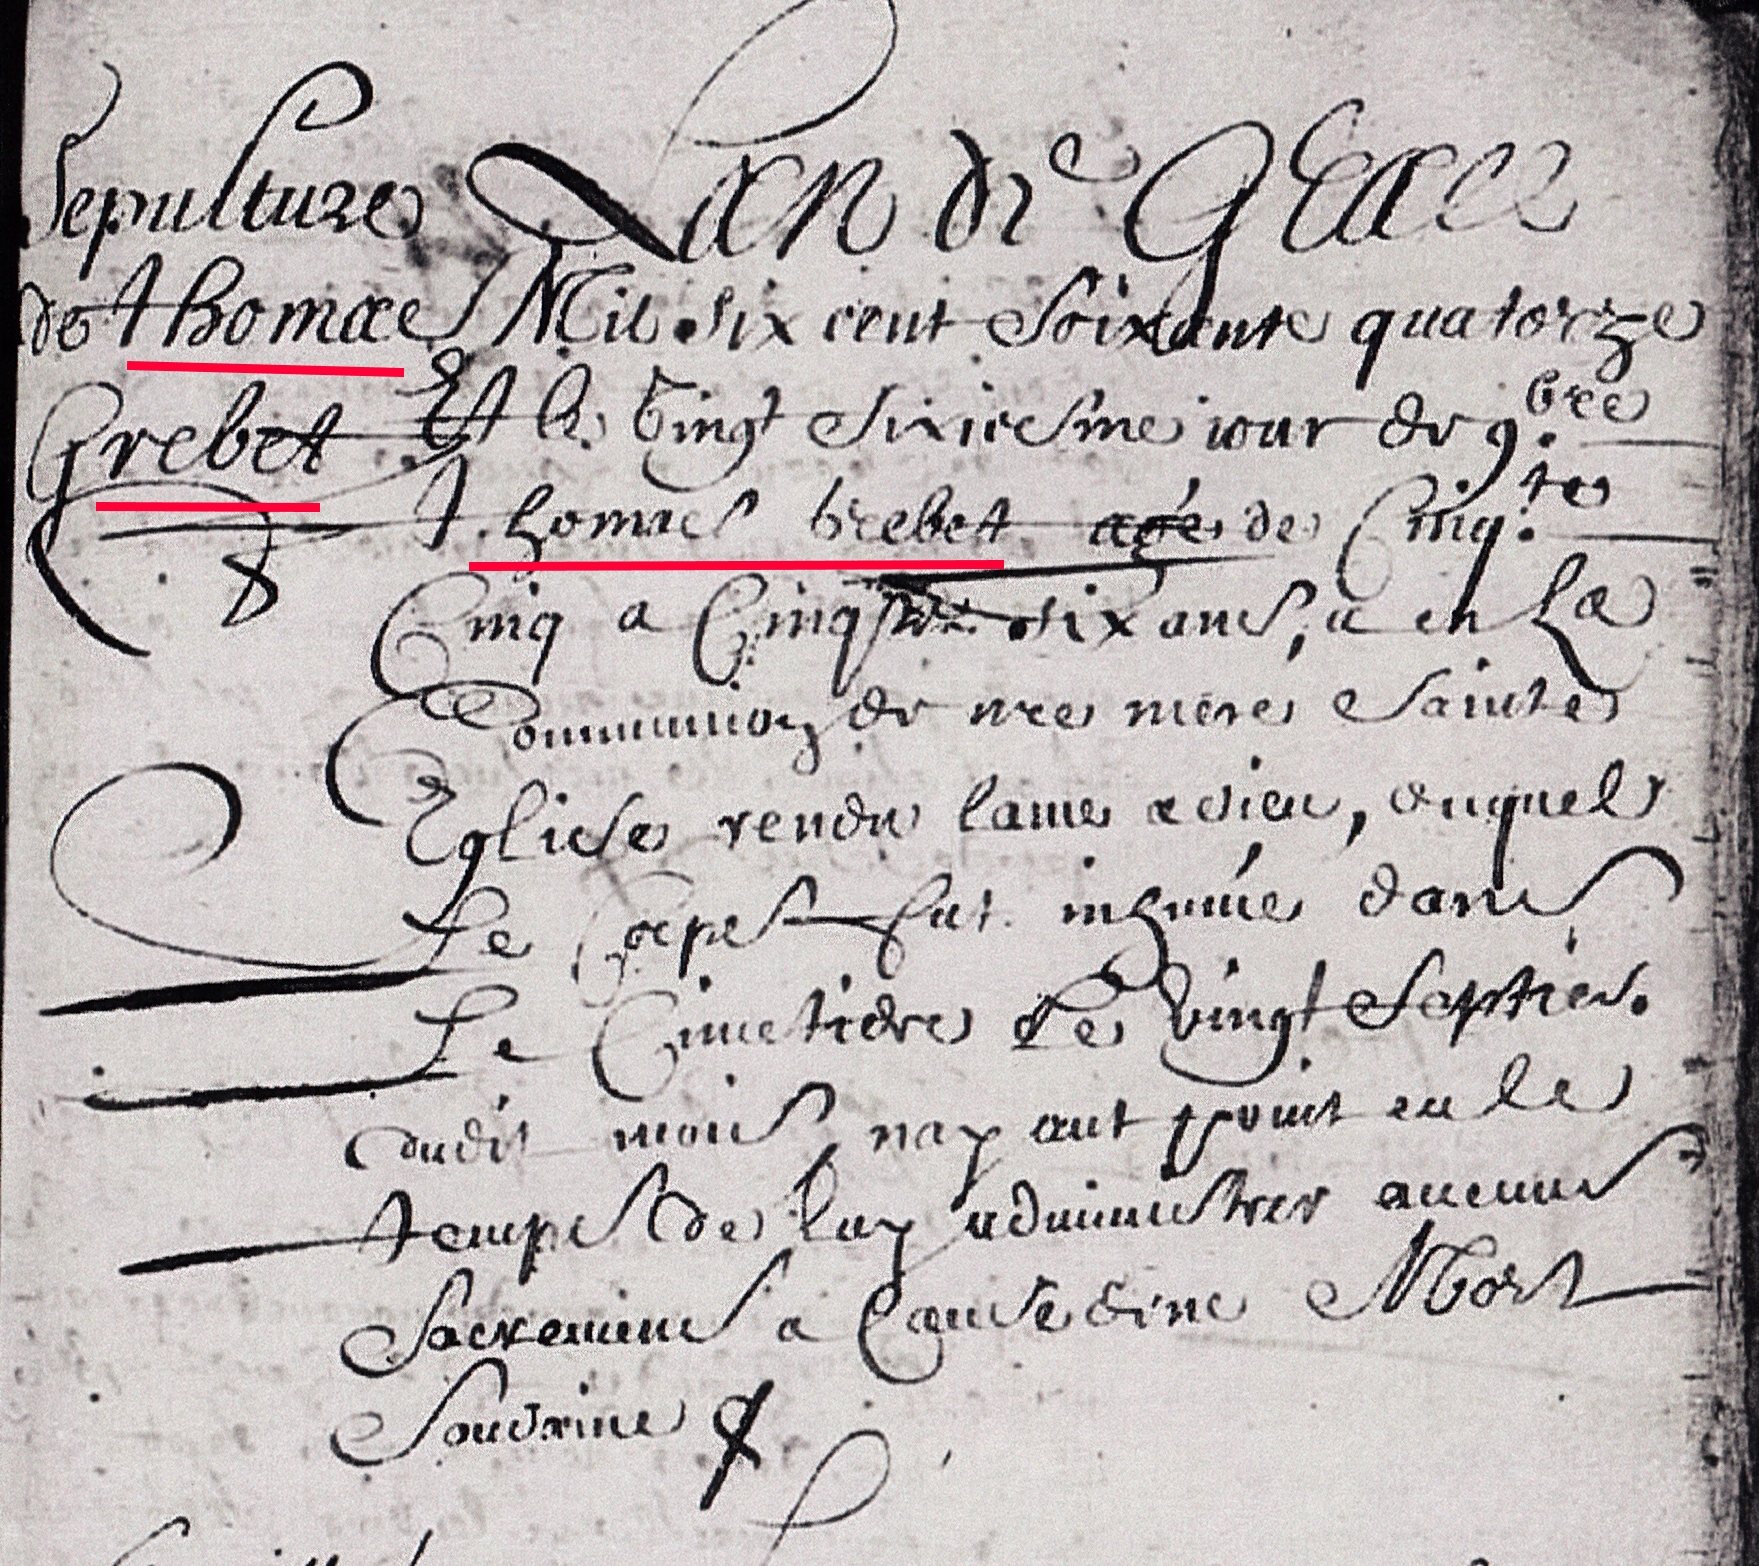 Sepulture
de thomas
Grebet
Lan de Grace
Mil six cent Soixante quatorze
Et le Vingt sixiesme iour de 9.bre
thomas Grebet agé de Cinq.te
Cinq a Cinq.te six ans, a en la
Communion de nre mere Sainte
Eglise rendu lame a dieu, duquel
Le Corps fut inhumé dans
Le Cimetiere Le Vingt septies.
dudit mois nayant point eu le
temps de luy administrer aucuns
Sacremens a Cause dune Mort
Soudaine